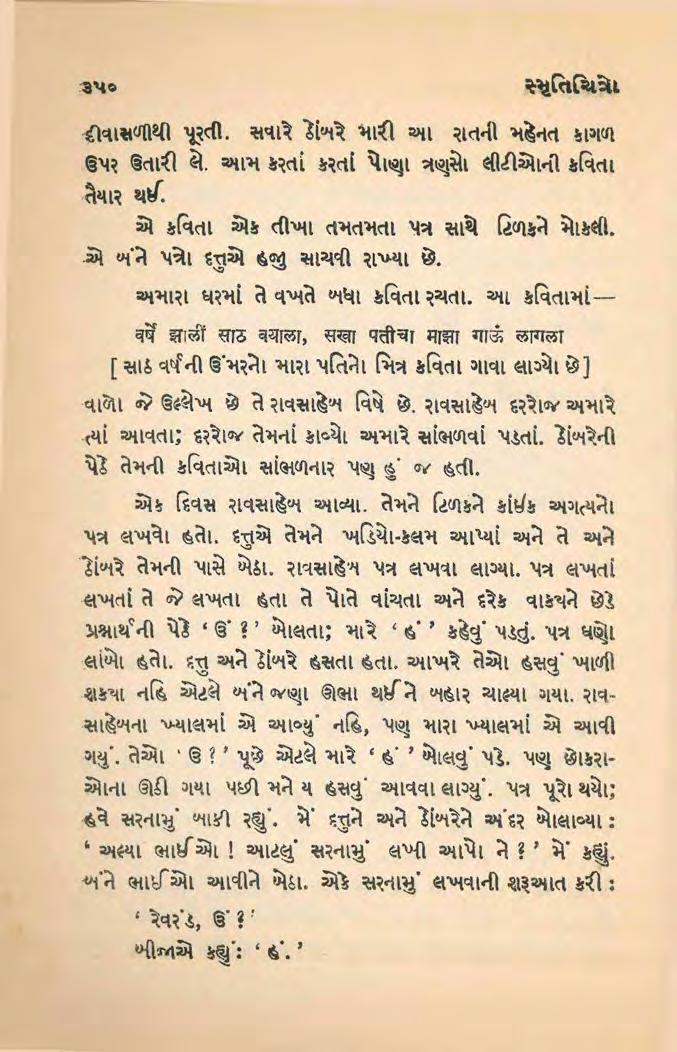 ૩૫૦ સ્મૃતિચિત્રો
દીવાસળીથી પૂરતી. સવારે ઠોંબરે મારી આ રાતની મહેનત કાગળ
ઉપર ઉતારી લે. આમ કરતાં કરતાં પોણા ત્રણસો લીટીઓની કવિતા
તૈયાર થઈ.
એ કવિતા એક તીખા તમતમતા પત્ર સાથે ટિળકને મોકલી.
એ બંને પત્રો દત્તુએ હજુ સાચવી રાખ્યા છે.
અમારા ઘરમાં તે વખતે બધા કવિતા રચતા. આ કવિતામાં—
वर्षें झालीं साठ वयाला, सखा पतीचा माझा गाऊं लागला
[ સાઠ વર્ષની ઉંમરનો મારા પતિનો મિત્ર કવિતા ગાવા લાગ્યો છે ]
વાળો જે ઉલ્લેખ છે તે રાવસાહેબ વિષે છે. રાવસાહેબ દરરોજ અમારે
ત્યાં આવતા; દરરોજ તેમનાં કાવ્યો અમારે સાંભળવાં પડતાં. ઠોંબરેની
પેઠે તેમની કવિતાઓ સાંભળનાર પણ હું જ હતી.
એક દિવસ રાવસાહેબ આવ્યા. તેમને ટિળકને કાંઈક અગત્યનો
પત્ર લખવો હતો. દત્તુએ તેમને ખડિયો-કલમ આપ્યાં અને તે અને
ઠોંબરે તેમની પાસે બેઠા. રાવસાહેબ પત્ર લખવા લાગ્યા. પત્ર લખતાં
લખતાં તે જે લખતા હતા તે પોતે વાંચતા અને દરેક વાક્યને છેડે
પ્રશ્નાર્થની પેઠે ‘ ઉં ? ’ બોલતા; મારે ‘ હં ’ કહેવું પડતું. પત્ર ઘણો
લાંબો હતો. દત્તુ અને ઠોંબરે હસતા હતા. આખરે તેઓ હસવું ખાળી
શક્યા નહિ એટલે બંને જણા ઊભા થઈને બહાર ચાલ્યા ગયા. રાવ-
સાહેબના ખ્યાલમાં એ આવ્યું નહિ, પણ મારા ખ્યાલમાં એ આવી
ગયું. તેઓ ‘ ઉ ? ’ પૂછે એટલે મારે ‘ હં ’ બોલવું પડે. પણ છોકરા-
ઓના ઊઠી ગયા પછી મને ય હસવું આવવા લાગ્યું. પત્ર પૂરો થયો;
હવે સરનામું બાકી રહ્યું. મેં દત્તુને અને ઠોંબરેને અંદર બોલાવ્યા :
‘ અલ્યા ભાઈઓ ! આટલું સરનામું લખી આપો ને ? ’ મેં કહ્યું.
બંને ભાઈઓ આવીને બેઠા. એકે સરનામું લખવાની શરૂઆત કરી :
‘ રેવરંડ, ઉં ? ’
બીજાએ કહ્યું: ‘ હં. ’